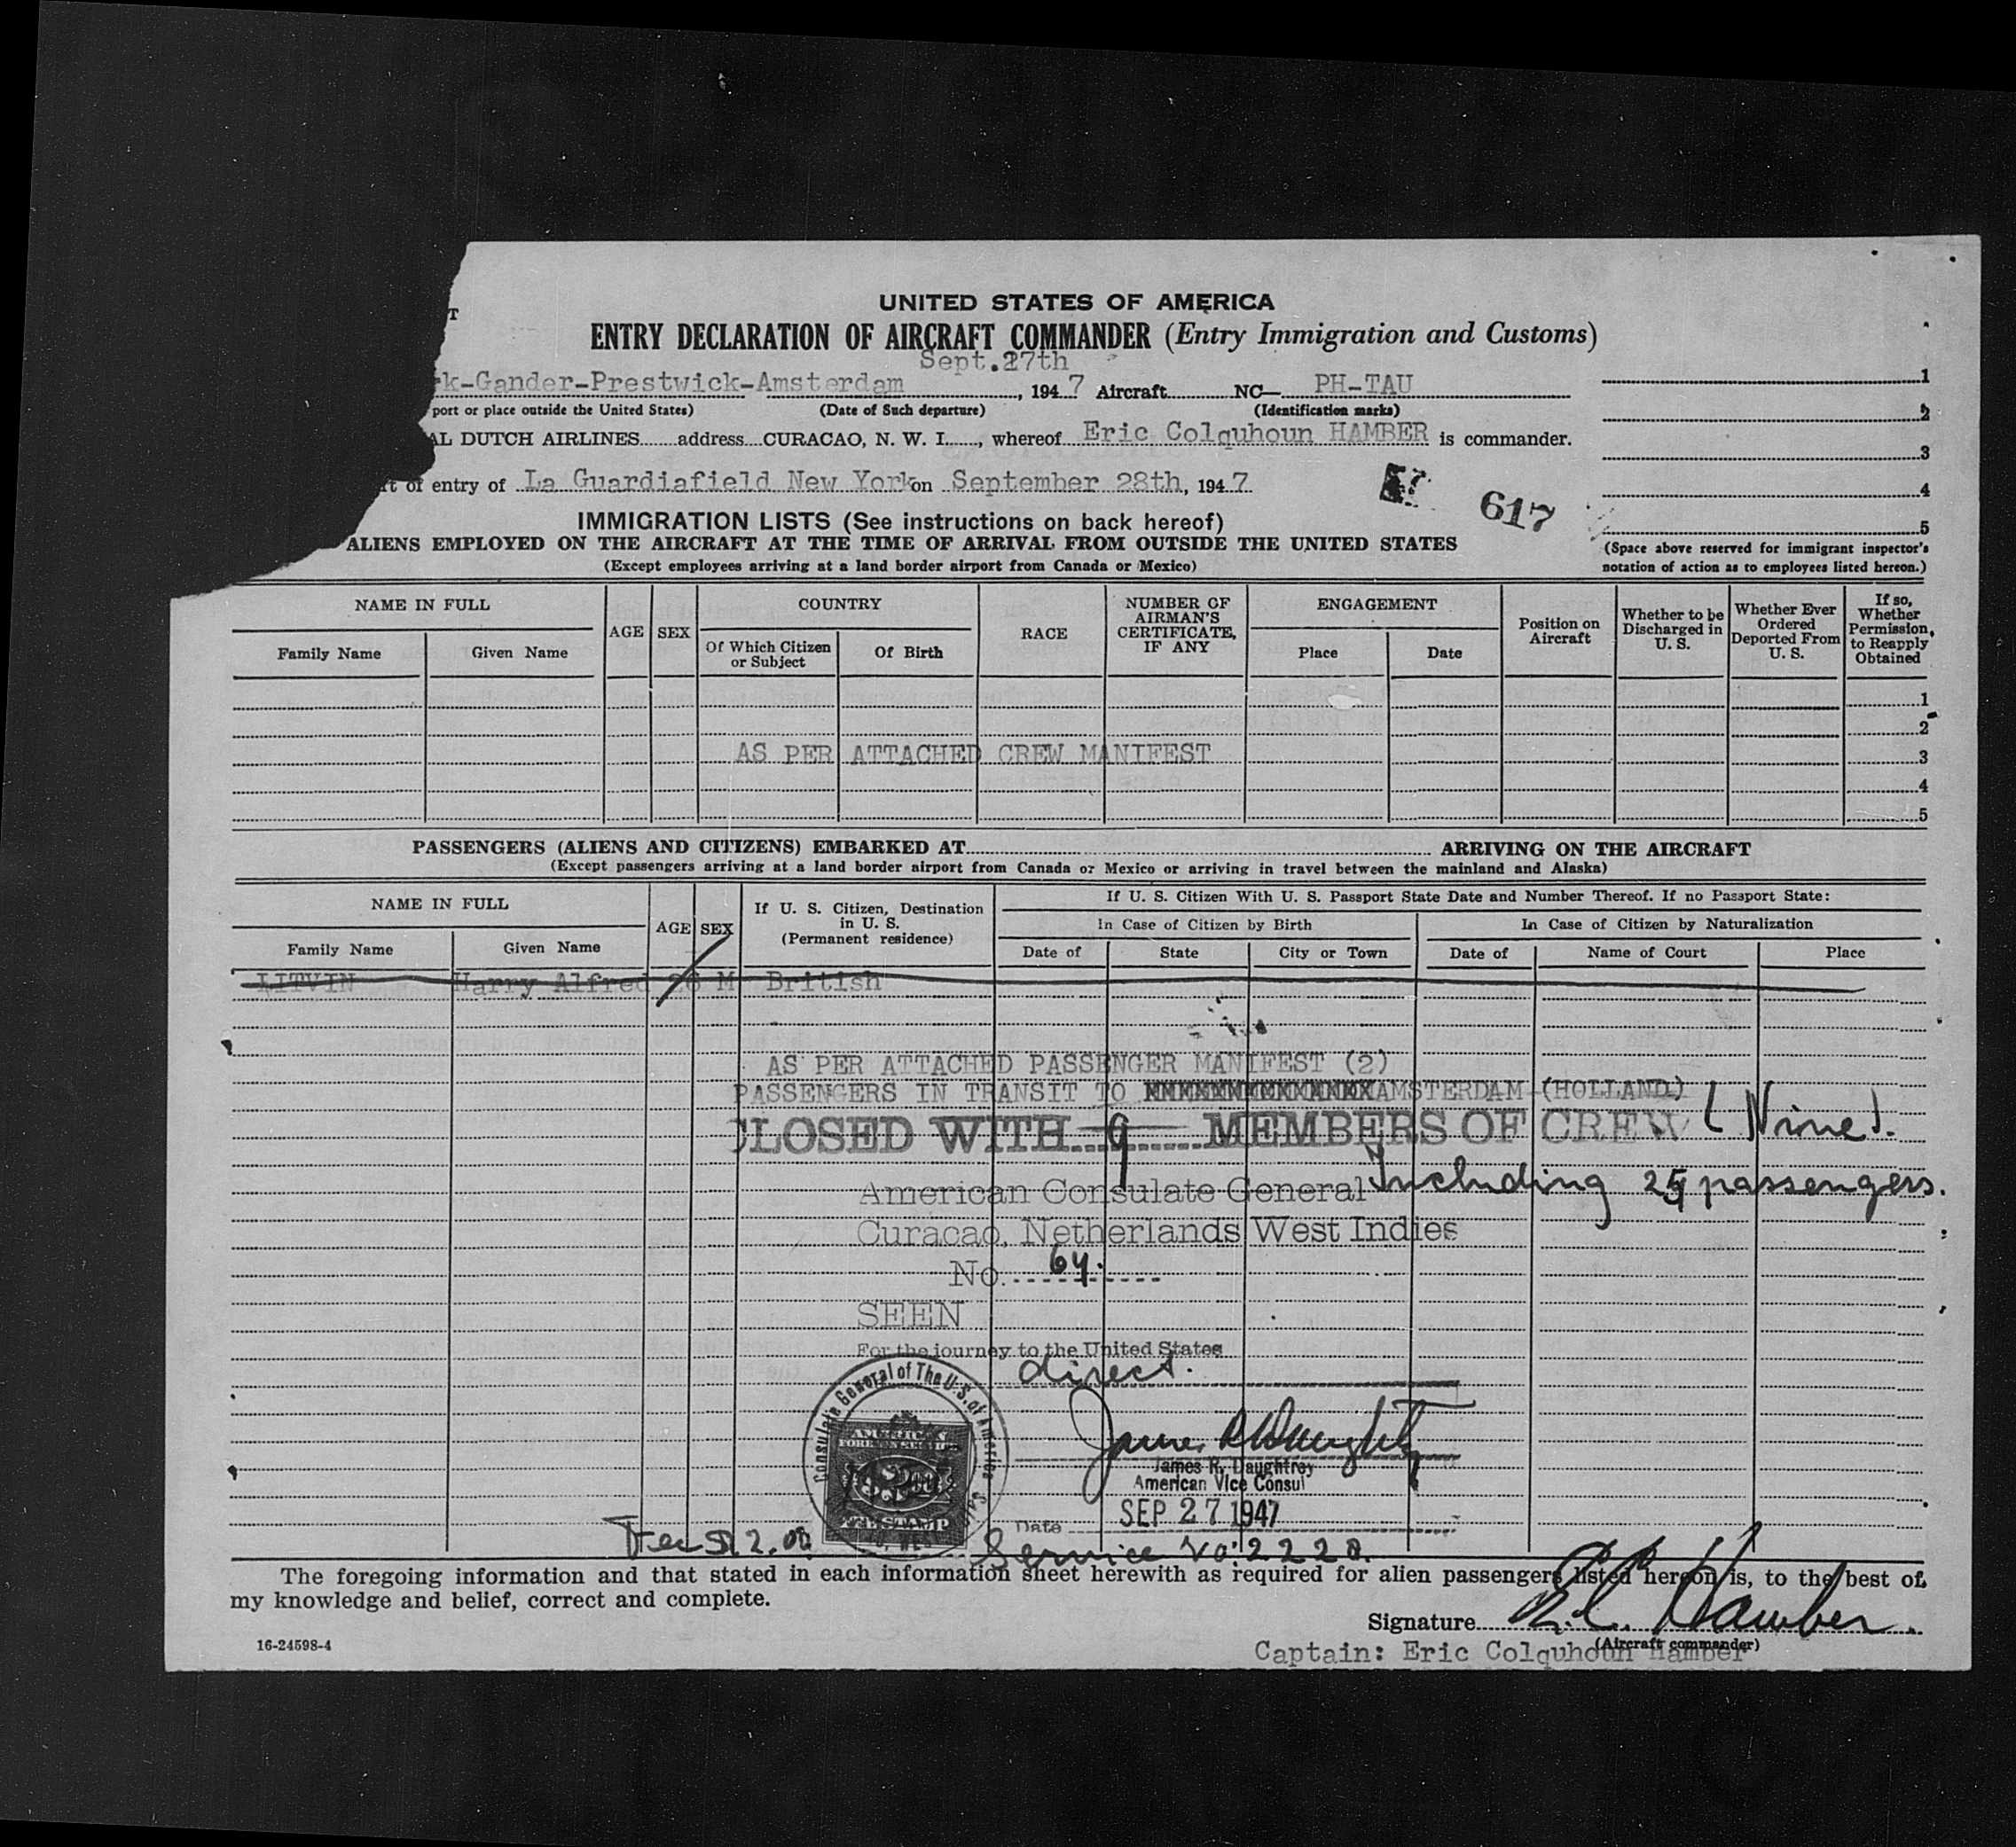 T
UNITED STATES OF AMERICA
ENTRY DECLARATION OF AIRCRAFT COMMANDER (Entry Immigration and Customs)
Sept.27th
rk-Gander-Prestwick-Amsterdam , 1947 Aircraft NC— PH-TAU
port or place outside the United States) (Date of Such departure) (Identification marks)
AL DUTCH AIRLINES address CURACAO, N. W. I., whereof Eric Colquhoun HAMBER is commander.
of entry of La Guardiafield New York on September 28th, 1947
617
1
2
3
4
5
(Space above reserved for immigrant inspector's notation of action as to employees listed hereon.)
IMMIGRATION LISTS (See instructions on back hereof)
ALIENS EMPLOYED ON THE AIRCRAFT AT THE TIME OF ARRIVAL FROM OUTSIDE THE UNITED STATES
(Except employees arriving at a land border airport from Canada or Mexico)
NAME IN FULL AGE SEX COUNTRY RACE NUMBER OF AIRMAN'S CERTIFICATE, IF ANY ENGAGEMENT Position on Aircraft Whether to be Discharged in U. S. Whether Ever Ordered Deported From U. S. If so, Whether Permission, to Reapply Obtained
Family Name Given Name Of Which Citizen or Subject Of Birth Place Date
1
2
AS PER ATTACHED CREW MANIFEST 3
4
5
PASSENGERS (ALIENS AND CITIZENS) EMBARKED AT ARRIVING ON THE AIRCRAFT
(Except passengers arriving at a land border airport from Canada or Mexico or arriving in travel between the mainland and Alaska)
NAME IN FULL AGE SEX If U. S. Citizen, Destination in U. S. (Permanent residence) If U. S. Citizen With U. S. Passport State Date and Number Thereof. If no Passport State:
In Case of Citizen by Birth In Case of Citizen by Naturalization
Family Name Given Name Date of State City or Town Date of Name of Court Place
LITVIN Harry Alfred 26 M British
AS PER ATTACHED PASSENGER MANIFEST (2)
PASSENGERS IN TRANSIT TO AMSTERDAM (HOLLAND)
CLOSED WITH 9 MEMBERS OF CREW (Nine).
American Consulate General Including 25 passengers.
Curacao, Netherlands West Indies
No. 64.
SEEN
For the journey to the United States
direct.
Consulate General of The U.S. of America
AMERICAN
FOREIGN SERVICE
FEE STAMP
James R. Daughtrey
American Vice Consul
Date SEP 27 1947
Fee $ 2.00 Service No: 2220.
The foregoing information and that stated in each information sheet herewith as required for alien passengers listed hereon is, to the best of
my knowledge and belief, correct and complete.
Signature E.C. Hamber.
(Aircraft commander)
16-24598-4
Captain: Eric Colquhoun Hamber